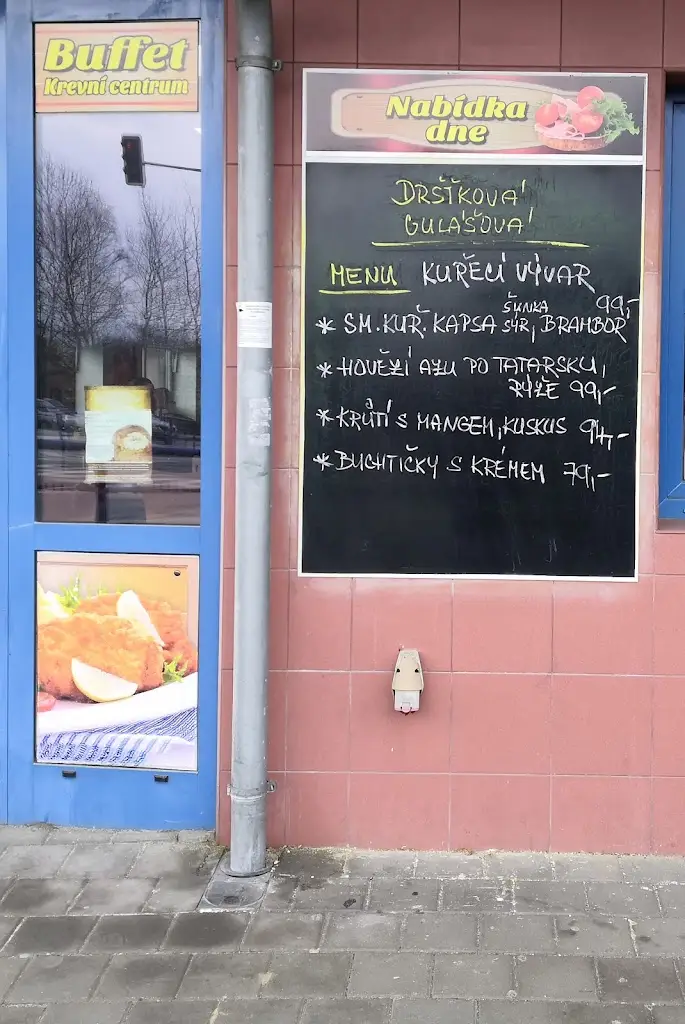 Buffet
Krevní centrum
Nabídka
dne
DRŠŤKOVÁ
GULÁŠOVÁ
MENU KUŘECÍ VÝVAR
* SM. KUŘ. KAPSA ŠUNKA SÝR, BRAMBOR 99,-
* HOVĚZÍ AZU PO TATARSKU,
RÝŽE 99,-
* KRŮTÍ S MANGEM, KUSKUS 94,-
* BUCHTIČKY S KRÉMEM 79,-